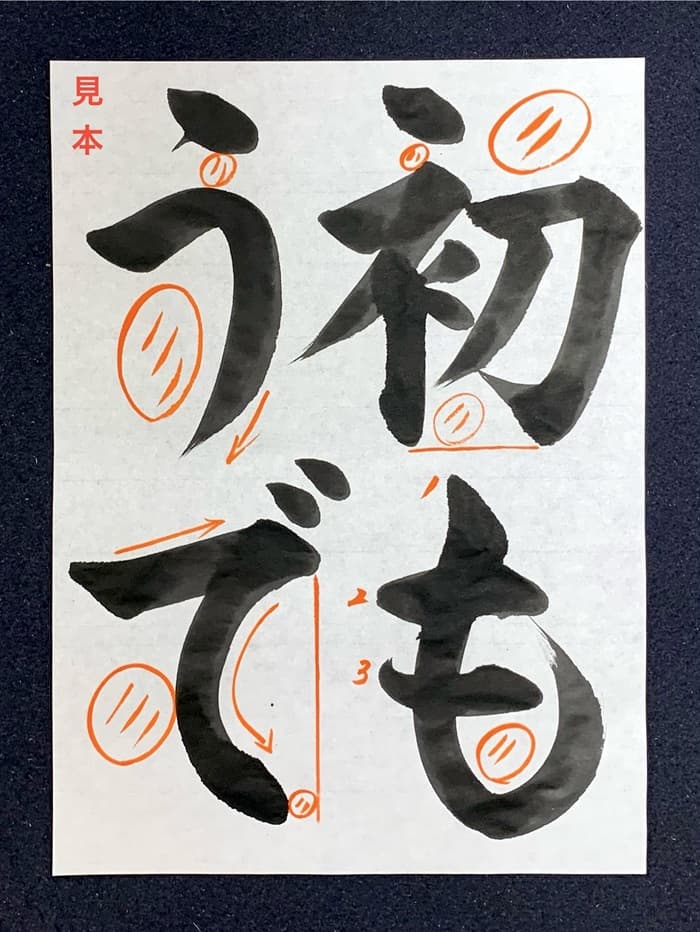 初も
1
2
3
うで
見本